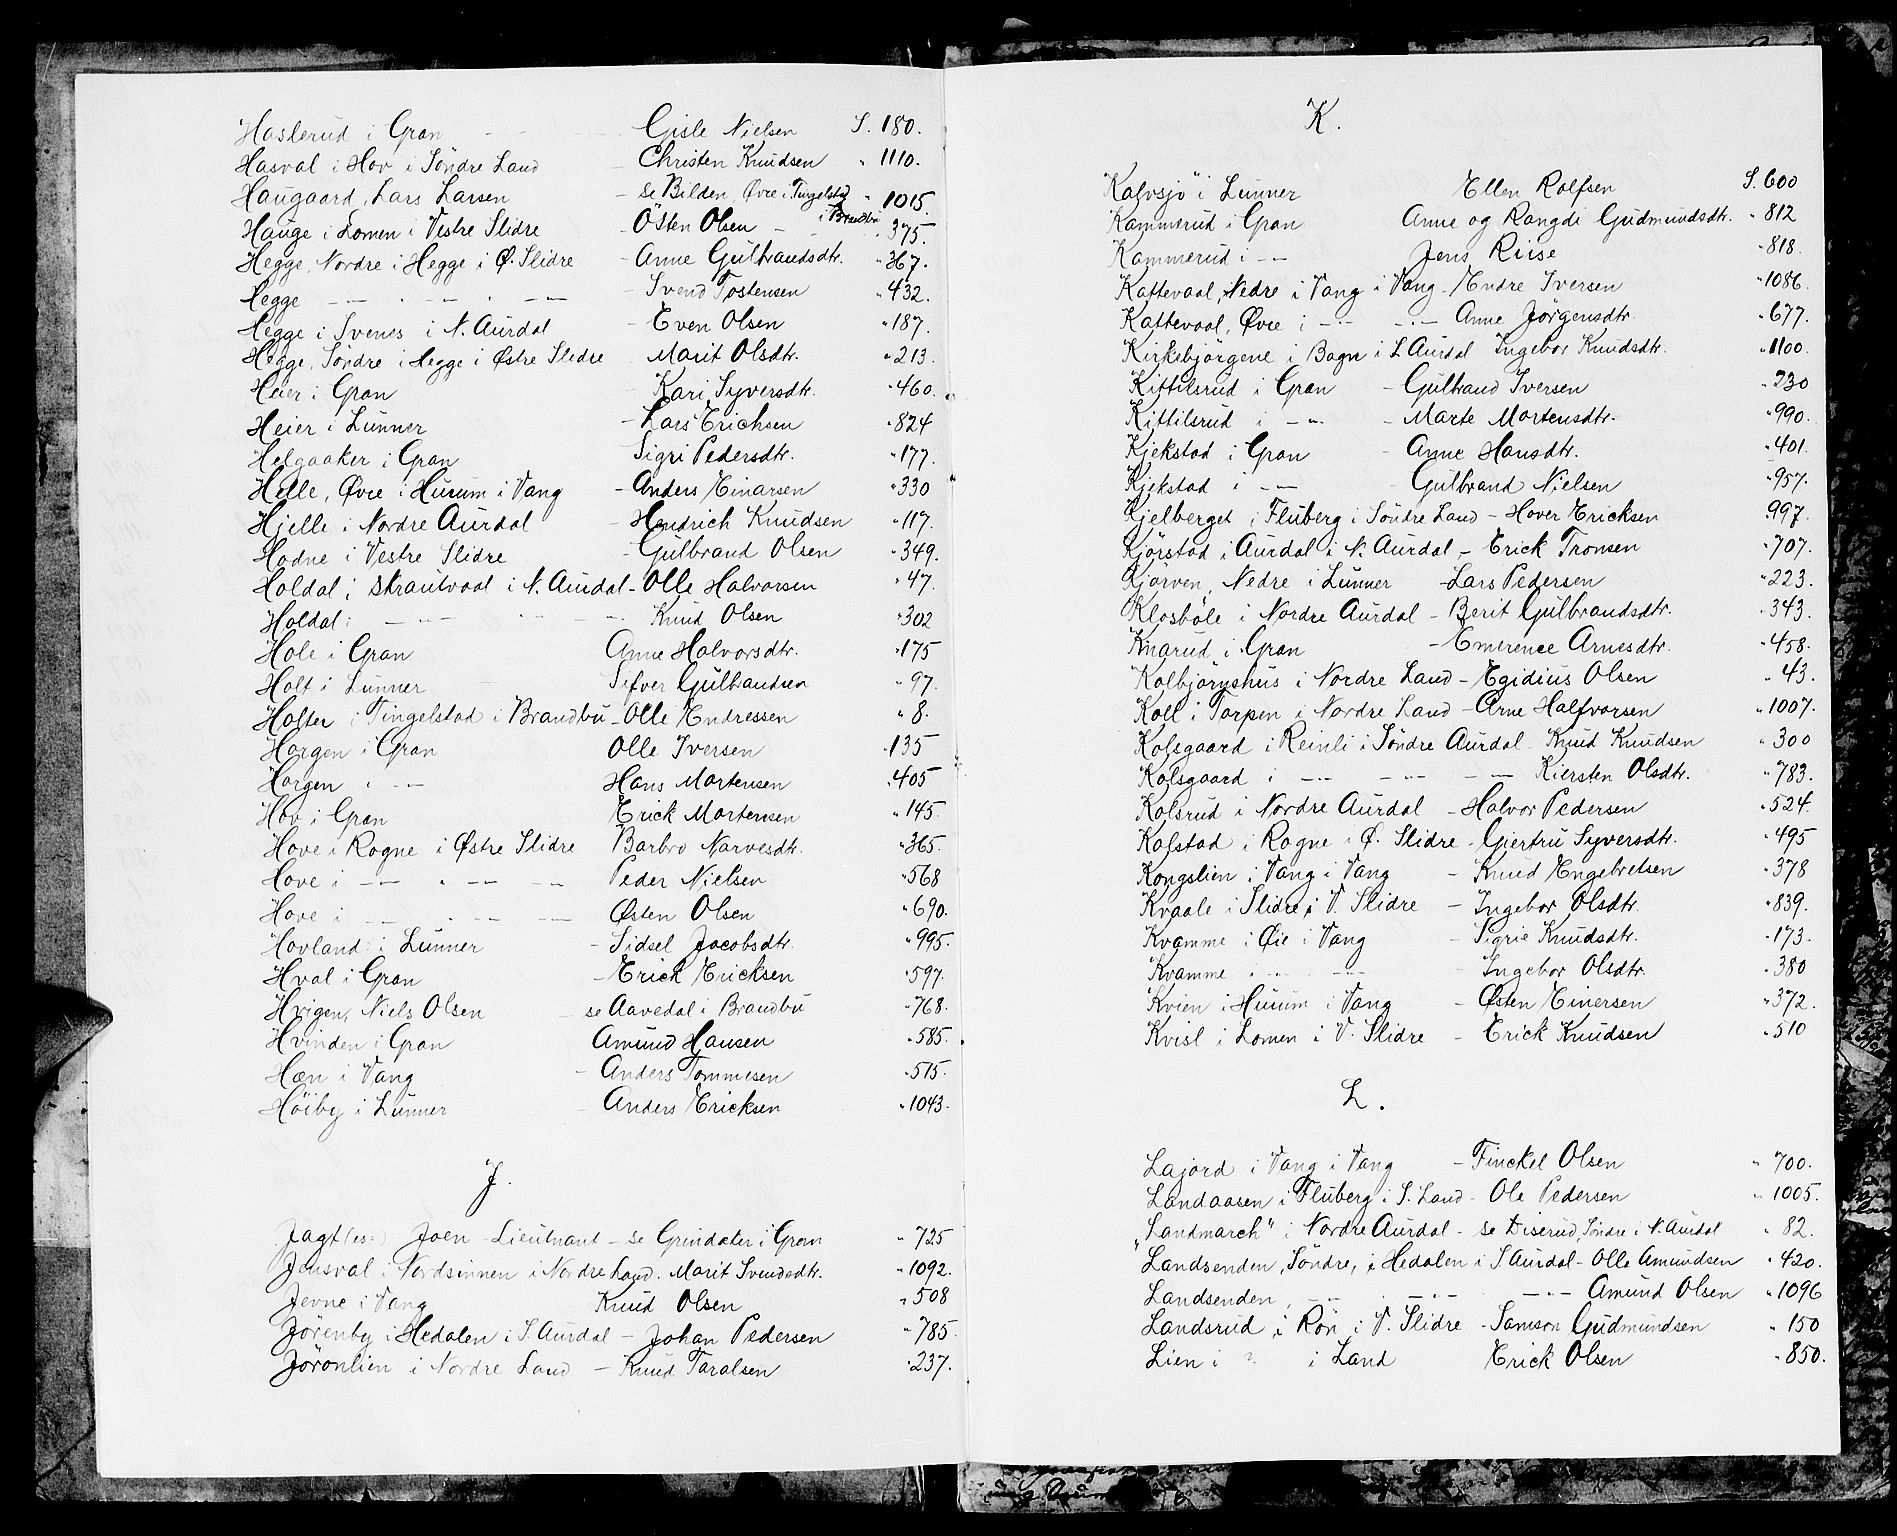 Haslerud i Gran - - Gisle Nielsen S. 180.
Hasval i Hov i Söndre Land - Christen Knudsen " 1110.
Haugaard, Lars Larsen - se Bilden, Øvre i Tingelstad i Brandbu " 1015.
Hauge i Lomen i Vestre Slidre - Östen Olsen - " 375.
Hegge, Nordre i Hegge i Ø. Slidre - Anne Gulbrandsdtr. " 367.
Hegge -"- -"- -"- - Svend Tostensen " 432.
Hegge i Svenes i N. Aurdal - Even Olsen " 187.
Hegge, Söndre i Hegge i Østre Slidre - Marit Olsdtr. " 213.
Heier i Gran - Kari Syversdtr. " 460.
Heier i Lunner - Lars Erichsen " 824
Helgaaker i Gran Sigri Pedersdtr. " 177.
Helle, Øvre i Hurum i Vang - Anders Einarsen " 330
Hjelle i Nordre Aurdal - Hendrich Knudsen " 117.
Hodne i Vestre Slidre - Gulbrand Olsen " 349.
Holdal i Skrautvaal i N. Aurdal - Olle Halvorsen " 47.
Holdal i -"- -"- Knud Olsen " 302
Hole i Gran Anne Halvorsdtr. " 175
Holt i Lunner - Sifver Gulbrandsen " 97.
Holter i Tingelstad i Brandbu - Olle Endressen " 8.
Horgen i Gran Olle Iversen " 135
Horgen i -"- Hans Mortensen " 405
Hov i Gran Erick Mortensen " 145.
Hove i Rogne i Østre Slidre Barbro Narvesdtr. " 365.
Hove i -"- " -"- -"- Peder Nielsen " 568
Hove i -"- -"- -"- Østen Olsen " 690.
Hovland i Lunner - Sidsel Jacobsdtr. " 995.
Hval i Gran - Erick Ericksen " 597.
Hvigen, Niels Olsen - se Aavedal i Brandbu " 768.
Hvinden i Gran Amund Hansen " 585.
Hæn i Vang - Anders Tommesen " 515.
Höiby i Lunner - Anders Ericksen " 1043.
J.
Jagt(es:) Joen - Lieutnant - se Grindaker i Gran " 725
Jensval i Nordsinnen i Nordre Land. Marit Svendsdtr. " 1092.
Jevne i Vang Knud Olsen " 508
Jörenby i Hedalen i S. Aurdal - Johan Pedersen " 785.
Jöronlien i Nordre Land - Knud Taralsen " 237.
K.
"Kalvsjö" i Lunner Ellen Rolfsen S. 600
Kammerud i Gran Anne og Rangdi Gudmundsdtr. " 812
Kammerud i -"- Jens Riise " 818.
Kattevaal, Nedre i Vang i Vang - Endre Iversen " 1086.
Kattevaal, Øvre i -"- -"- Anne Jörgensdtr. " 677.
Kirkebjörgene i Bagn i S. Aurdal Ingebor Knudsdtr. " 1100.
Kittilsrud i Gran - Gulbrand Iversen " 230
Kittilsrud i -"- - Marte Mortensdtr. " 990.
Kjekstad i Gran - Anne Hansdtr. " 401.
Kjekstad i -"- - Gulbrand Nielsen " 957.
Kjelberget i Fluberg i Söndre Land - Hover Ericksen 997.
Kjörstad i Aurdal i N. Aurdal - Erick Tronsen " 707.
Kjörven, Nedre i Lunner - Lars Pedersen " 223.
Klosböle i Nordre Aurdal - Berit Gulbrandsdtr. " 343.
Knarud i Gran - Emerence Arnesdtr. " 458.
Kolbjörnshus i Nordre Land - Egidius Olsen " 43.
Koll i Torpen i Nordre Land - Arne Halfvorsen " 1007.
Kolsgaard i Reinli i Söndre Aurdal - Knud Knudsen " 300
Kolsgaard i -"- -"- -"- Kiersten Olsdtr. " 783.
Kolsrud i Nordre Aurdal - Halvor Pedersen " 524.
Kolstad i Rogne i Ø. Slidre - Giertru Syversdtr. " 495
Kongslien i Vang i Vang - Knud Engebretsen " 378
Kvaale i Slidre i V. Slidre - Ingebor Olsdtr. " 839.
Kvamme i Øie i Vang - Sigrie Knudsdtr. " 173.
Kvamme i -"- -"- - Ingebor Olsdtr. " 380
Kvien i Hurum i Vang - Østen Einersen " 372.
Kvisl i Lomen i V. Slidre - Erick Knudsen " 510
L.
Lajord i Vang i Vang - Finckel Olsen " 700.
Landaasen i Fluberg i S. Land - Ole Pedersen " 1005.
"Landmarch" i Nordre Aurdal - se Diserud, Söndre i N. Aurdal " 82.
Landsenden, Söndre, i Hedalen i S. Aurdal - Olle Amundsen " 420.
Landsenden, -"- -"- -"- Amund Olsen " 1096
Landsrud i Røn i V. Slidre - Samson Gudmundsen " 150
Lien i ? i Land Erick Olsen " 850.